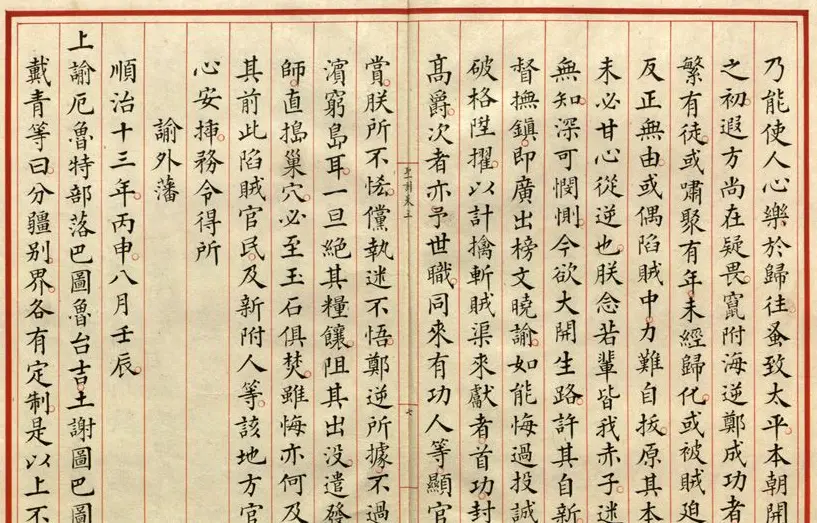 乃能使人心樂於歸往蚤致太平本朝開
之初遐方尚在疑畏竄附海逆鄭成功者
繁有徒或嘯聚有年未經歸化或被賊迫
反正無由或偶陷賊中力難自拔原其本
未必甘心從逆也朕念若輩皆我赤子迷
無知深可憫惻今欲大開生路許其自新
督撫鎮即廣出榜文曉諭如能悔過投誠
破格陞擢以計擒斬賊渠來獻者首功封
高爵次者亦予世職同來有功人等顯官
聖訓卷三
七
賞朕所不恡儻執迷不悟鄭逆所據不過
濱窮島耳一旦絕其糧饟阻其出沒遣發
師直搗巢穴必至玉石俱焚雖悔亦何及
其前此陷賊官民及新附人等該地方官
心安揷務令得所
諭外藩
順治十三年丙申八月壬辰
上諭厄魯特部落巴圖魯台吉土謝圖巴圖
戴青等曰分疆別界各有定制是以上不